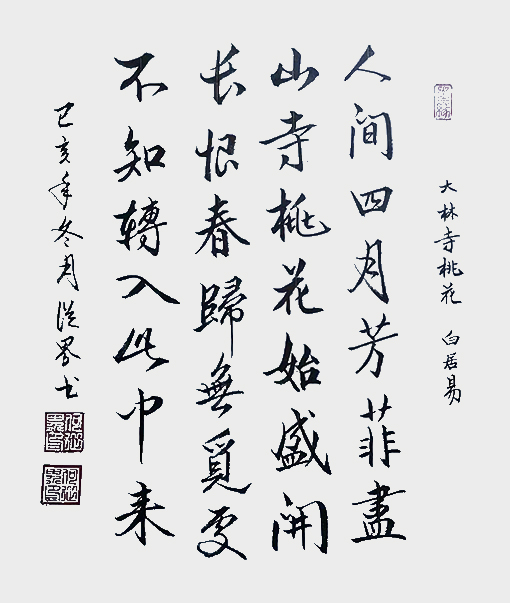 大林寺桃花 白居易
人间四月芳菲盡
山寺桃花始盛開
长恨春歸無覓处
不知轉入此中来
己亥年冬月书